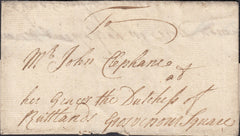 To
Mr John Clephane
at
her Grace the Dutchess of
Rutlands Grosvenour Square